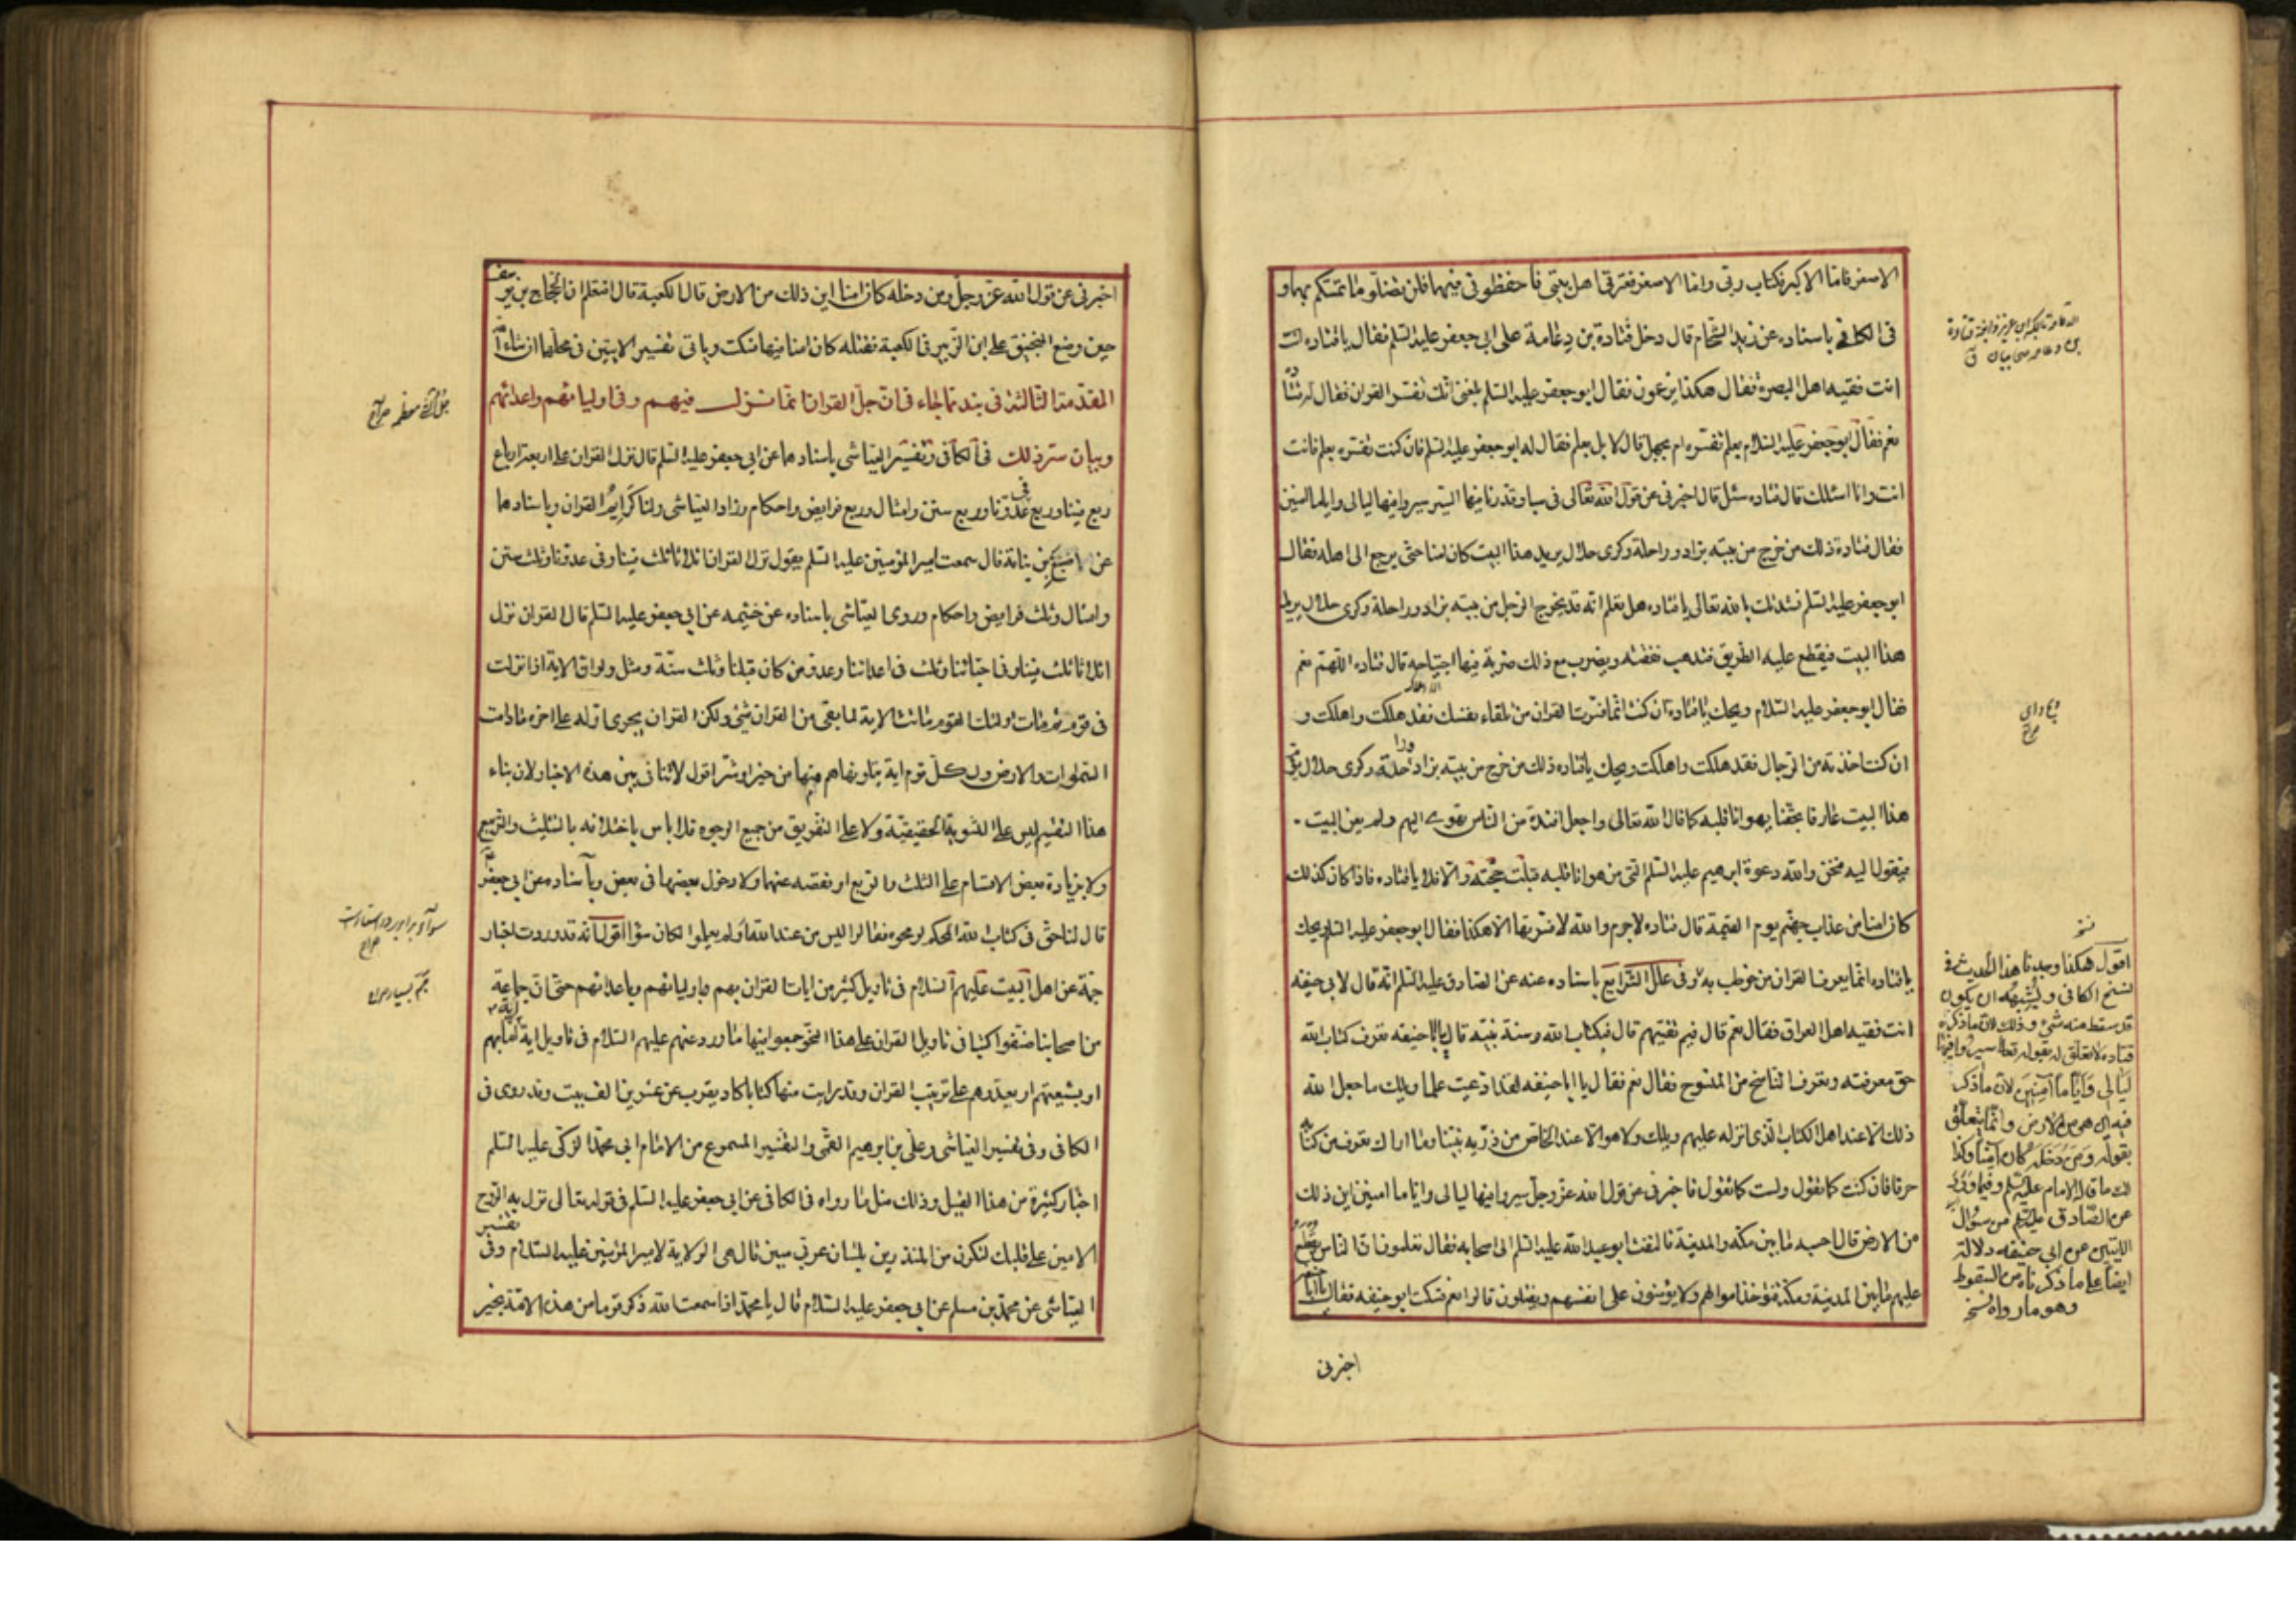 الاصغر فاما الاكبر فكتاب ربي واما الاصغر فعترتي اهل بيتي فاحفظوني فيهما فلن تضلوا ما تمسكتم بهما و
في الكافي باسناده عن زيد الشحام قال دخل قتادة بن دعامة على ابي جعفر عليه السلم فقال يا قتاده انت
انت فقيه اهل البصرة فقال هكذا يزعمون فقال ابو جعفر عليه السلم بلغني انك تفسر القران فقال له قتادة
نعم فقال ابو جعفر عليه السلام بعلم تفسره ام بجهل قال لا بل بعلم فقال له ابو جعفر عليه السلم فان كنت تفسره بعلم فانت
انت وانا اسئلك قال قتاده سئل قال اخبرني عن قول الله تعالى في سبا وقدرنا فيها السير سيروا فيها ليالي واياما امنين
فقال قتادة ذلك من خرج من بيته بزاد وراحلة وكرى حلال يريد هذا البيت كان امنا حتى يرجع الى اهله فقال
ابو جعفر عليه السلم نشدتك بالله تعالى يا قتاده هل تعلم انه قد يخرج الرجل من بيته بزاد وراحلة وكرى حلال يريد
هذا البيت فيقطع عليه الطريق فتذهب نفقته ويضرب مع ذلك ضربة فيها اجتياحه قال قتاده اللهم نعم
فقال ابو جعفر عليه السلام ويحك يا قتاده ان كنت انما فسرت القران من تلقاء نفسك فقد هلكت واهلكت و
ان كنت اخذته من الرجال فقد هلكت واهلكت ويحك يا قتاده ذلك من خرج من بيته بزاد وراحلة وكرى حلال يؤم
هذا البيت عارفا بحقنا يهوانا قلبه كما قال الله تعالى واجعل افئدة من الناس تهوى اليهم ولم يعن البيت
فيقول اليه فنحن والله دعوة ابرهيم عليه السلم التي من هوانا قلبه قبلت حجته والا فلا يا قتاده فاذا كان كذلك
كان امنا من عذاب جهنم يوم القيمة قال قتاده لا جرم والله لا فسرتها الا هكذا فقال ابو جعفر عليه السلم ويحك
يا قتاده انما يعرف القران من خوطب به وفي علل الشرايع باسناده عنه عن الصادق عليه السلم انه قال لابي حنيفه
انت فقيه اهل العراق فقال نعم قال فبم تفتيهم قال فبكتاب الله وسنة نبيه قال يا ابا حنيفه تعرف كتاب الله
حق معرفته وتعرف الناسخ من المنسوخ فقال نعم فقال يا ابا حنيفه لقد ادعيت علما ويلك ما جعل الله
ذلك الا عند اهل الكتاب الذي انزله عليهم ويلك ولا هو الا عند الخاص من ذرية نبينا وما اراك تعرف من كتابه
حرفا فان كنت كما تقول ولست كما تقول فاخبرني عن قول الله عز وجل سيروا فيها ليالي واياما امنين اين ذلك
من الارض قال احسبه ما بين مكة والمدينة فالتفت ابو عبد الله عليه السلم الى اصحابه فقال تعلمون ان الناس يقطع
عليهم ما بين المدينة ومكة فتؤخذ اموالهم ولا يؤمنون على انفسهم ويقتلون قالوا نعم فسكت ابو حنيفه فقال يا ابا حنيفه
اخبرني
نسخه
اقول هكذا وجدنا هذا الحديث في
نسخ الكافي ويشبه ان يكون
قد سقط منه شيء وذلك لان ما ذكره
قتاده لا تعلق له بقوله تعالى سيروا فيها
ليالي وايّاما آمنين لان ما ذكر
فيه اي هي من الارض وانما يتعلق
بقوله ومن دخله كان آمنا وكذا
ما قاله الامام عليه السلم وفيما ورد
عن الصادق عليه السلم من سؤال
الايتين عن ابي حنيفه دلالة
ايضا على ما ذكرناه من السقوط
وهو ما رواه نسخه
اخبرني عن قول الله عز وجل ومن دخله كان امنا اين ذلك من الارض قال الكعبة قال افتعلم ان الحجاج بن يوسف
حين وضع المنجنيق على ابن الزبير في الكعبة فقتله كان امنا فيها فسكت وياتي تفسير الايتين في محلهما ان شاء الله
المقدمة الثالثة في نبذ مما جاء في ان جل القران انما نزل فيهم وفي اوليائهم واعدائهم
وبيان سر ذلك في الكافي وتفسير العياشي باسنادهما عن ابي جعفر عليه السلم قال نزل القران على اربعة ارباع
ربع فينا وربع في عدونا وربع سنن وامثال وربع فرايض واحكام وزاد العياشي ولنا كرايم القران وباسنادهما
عن اصبغ بن نباتة قال سمعت امير المؤمنين عليه السلم يقول نزل القران اثلاثا ثلث فينا وفي عدونا وثلث سنن
وامثال وثلث فرايض واحكام وروى العياشي باسناده عن خثيمه عن ابي جعفر عليه السلم قال القران نزل
اثلاثا ثلث فينا وفي احبائنا وثلث في اعدائنا وعدو من كان قبلنا وثلث سنة ومثل ولو ان الاية اذا نزلت
في قوم ثم مات اولئك القوم ماتت الاية لما بقي من القران شيء ولكن القران يجري اوله على اخره ما دامت
السموات والارض ولكل قوم اية يتلونها هم منها من خير او شر اقول لا تنافي بين هذه الاخبار لان بناء
هذا التقسيم ليس على التسوية الحقيقية ولا على التفريق من جميع الوجوه فلا باس باختلافه بالتثليث والتربيع
ولا بزيادة بعض الاقسام على الثلث والربع او نقصه عنهما ولا دخول بعضها في بعض وباسناده عن ابي جعفر
قال لنا حق في كتاب الله المحكم لو محوه فقالوا ليس من عند الله او لم يعلموا لكان سواء اقول انه قد وردت اخبار
جمة عن اهل البيت عليهم السلام في تاويل كثير من ايات القران بهم وباوليائهم وباعدائهم حتى ان جماعة
من اصحابنا صنفوا كتبا في تاويل القران على هذا النحو جمعوا فيها ما ورد عنهم عليهم السلام في تاويل اية اية اما بهم
او بشيعتهم او بعدوهم على ترتيب القران وقد رايت منها كتابا كاد يقرب من عشرين الف بيت وقد روى في
الكافي وفي تفسير العياشي وعلي بن ابرهيم القمي والتفسير المسموع من الامام ابي محمد الزكي عليه السلم
اخبار كثيرة من هذا القبيل وذلك مثل ما رواه في الكافي عن ابي جعفر عليه السلم في قوله تعالى نزل به الروح
الامين على قلبك لتكون من المنذرين بلسان عربي مبين قال هي الولاية لامير المؤمنين عليه السلام وفي تفسير
العياشي عن محمد بن مسلم عن ابي جعفر عليه السلام قال يا محمد اذا سمعت الله ذكر قوما من هذه الامة بخير